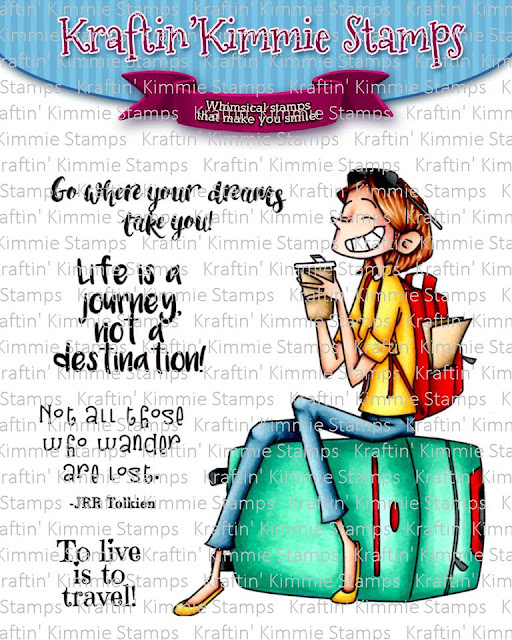 Kraftin' Kimmie Stamps
Whimsical stamps
that make you smile!
Go where your dreams
take you!
Life is a
journey,
not a
destination!
Not all those
who wander
are lost.
-JRR Tolkien
To live
is to
travel!